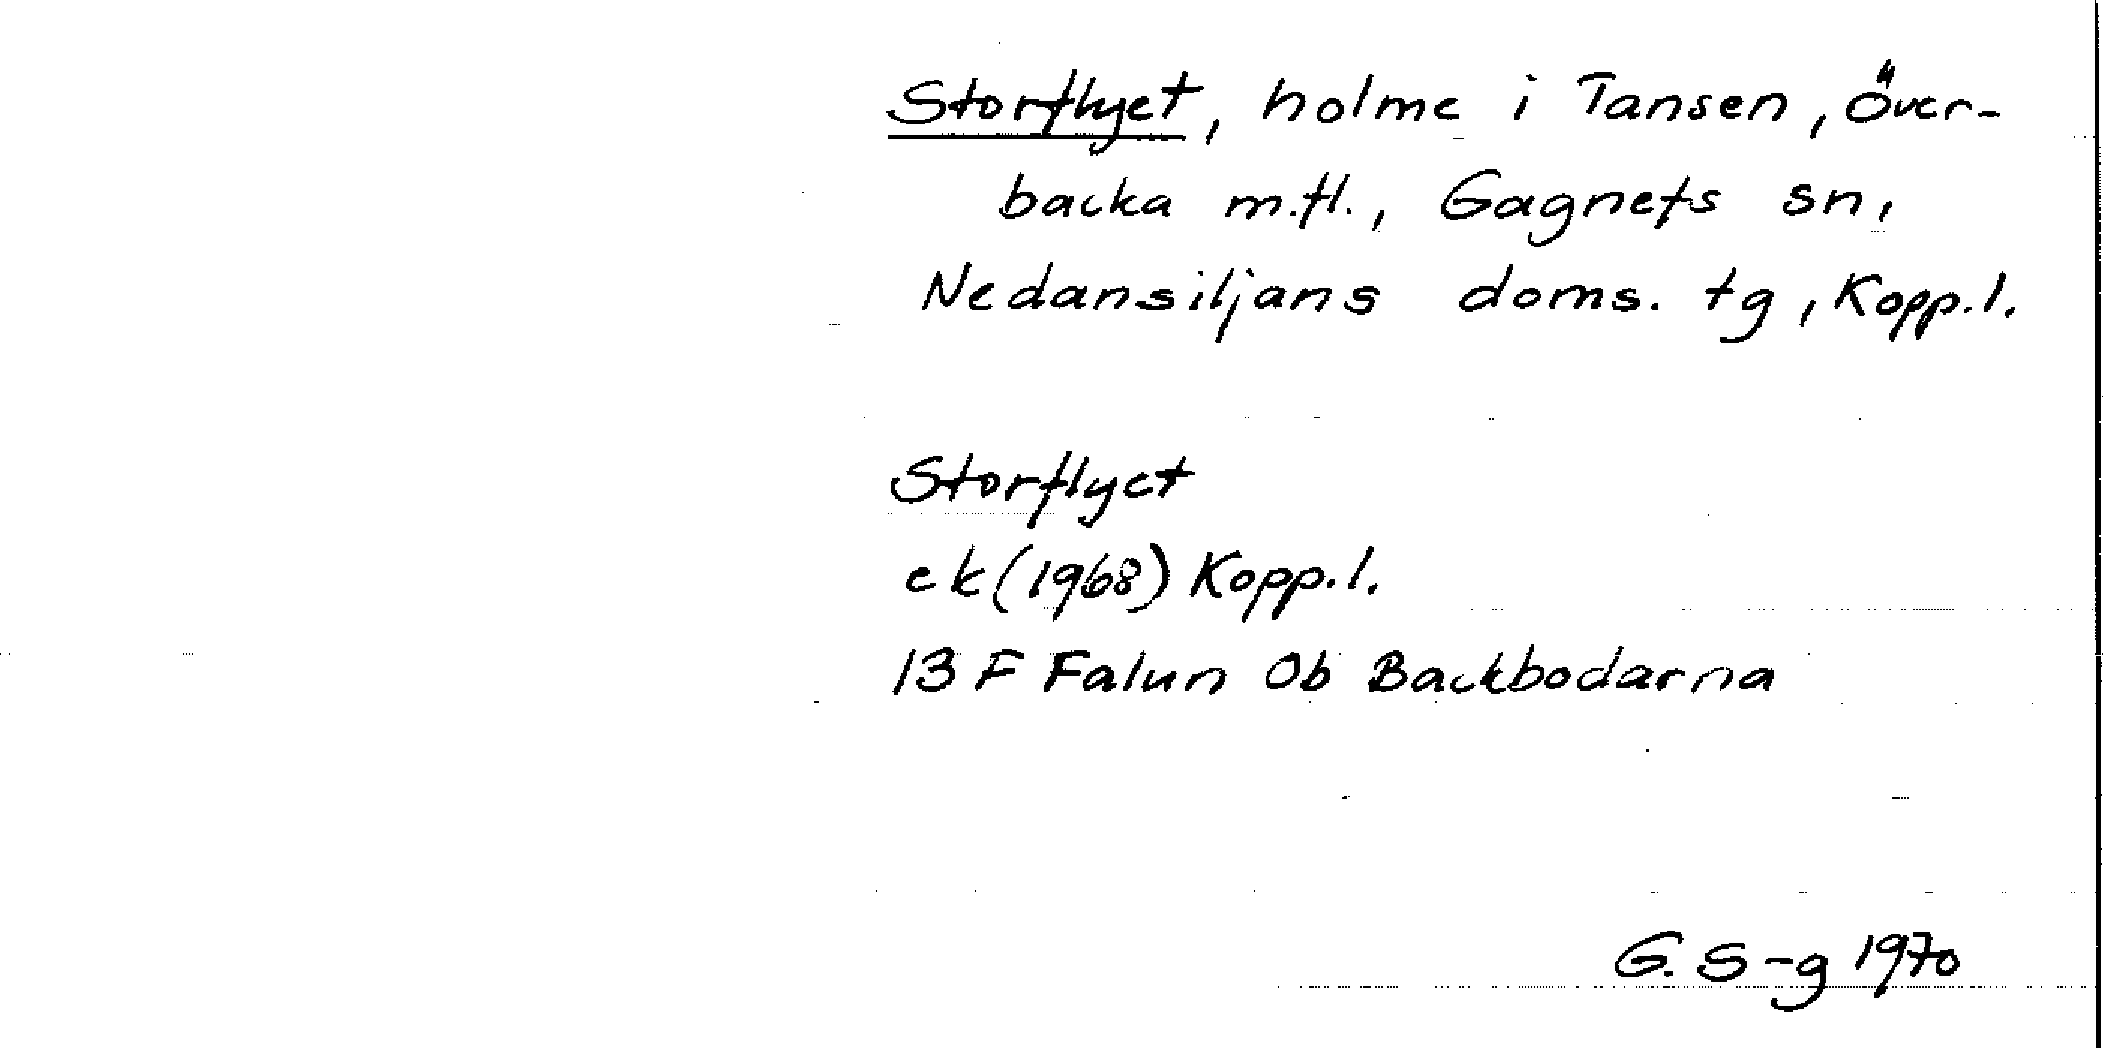 Storflyet, holme i Tansen, Över-
backa m.fl., Gagnefs sn,
Nedansiljans doms. tg, Kopp.l.
Storflyet
ek (1968) Kopp.l.
13 F Falun 0b Backbodarna
G. S-g 1970